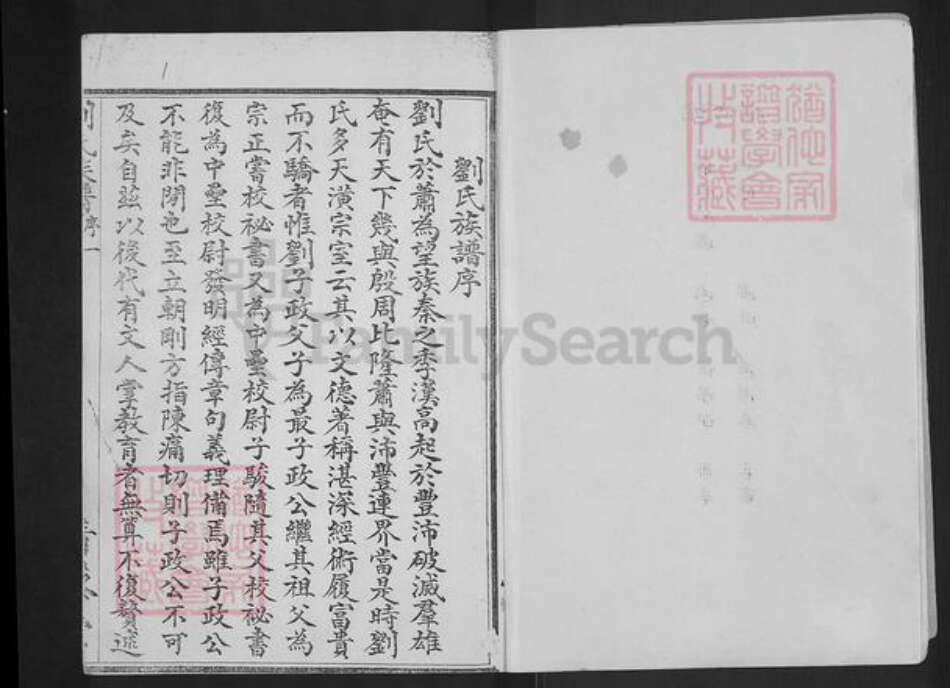 劉氏族譜序
劉氏於蕭為望族秦之季漢高起於豐沛破滅羣雄
奄有天下幾與殷周比隆蕭與沛豐連界當是時劉
氏多天潢宗室云其以文德著稱湛深經術履富貴
而不驕者惟劉子政父子為最子政公繼其祖父為
宗正嘗校祕書又為中壘校尉子駿隨其父校祕書
復為中壘校尉發明經傳章句義理備焉雖子政公
不能非閒也至立朝剛方指陳痛切則子政公不可
及矣自茲以後代有文人掌教育者無算不復贅述
序一
FamilySearch
譜學會